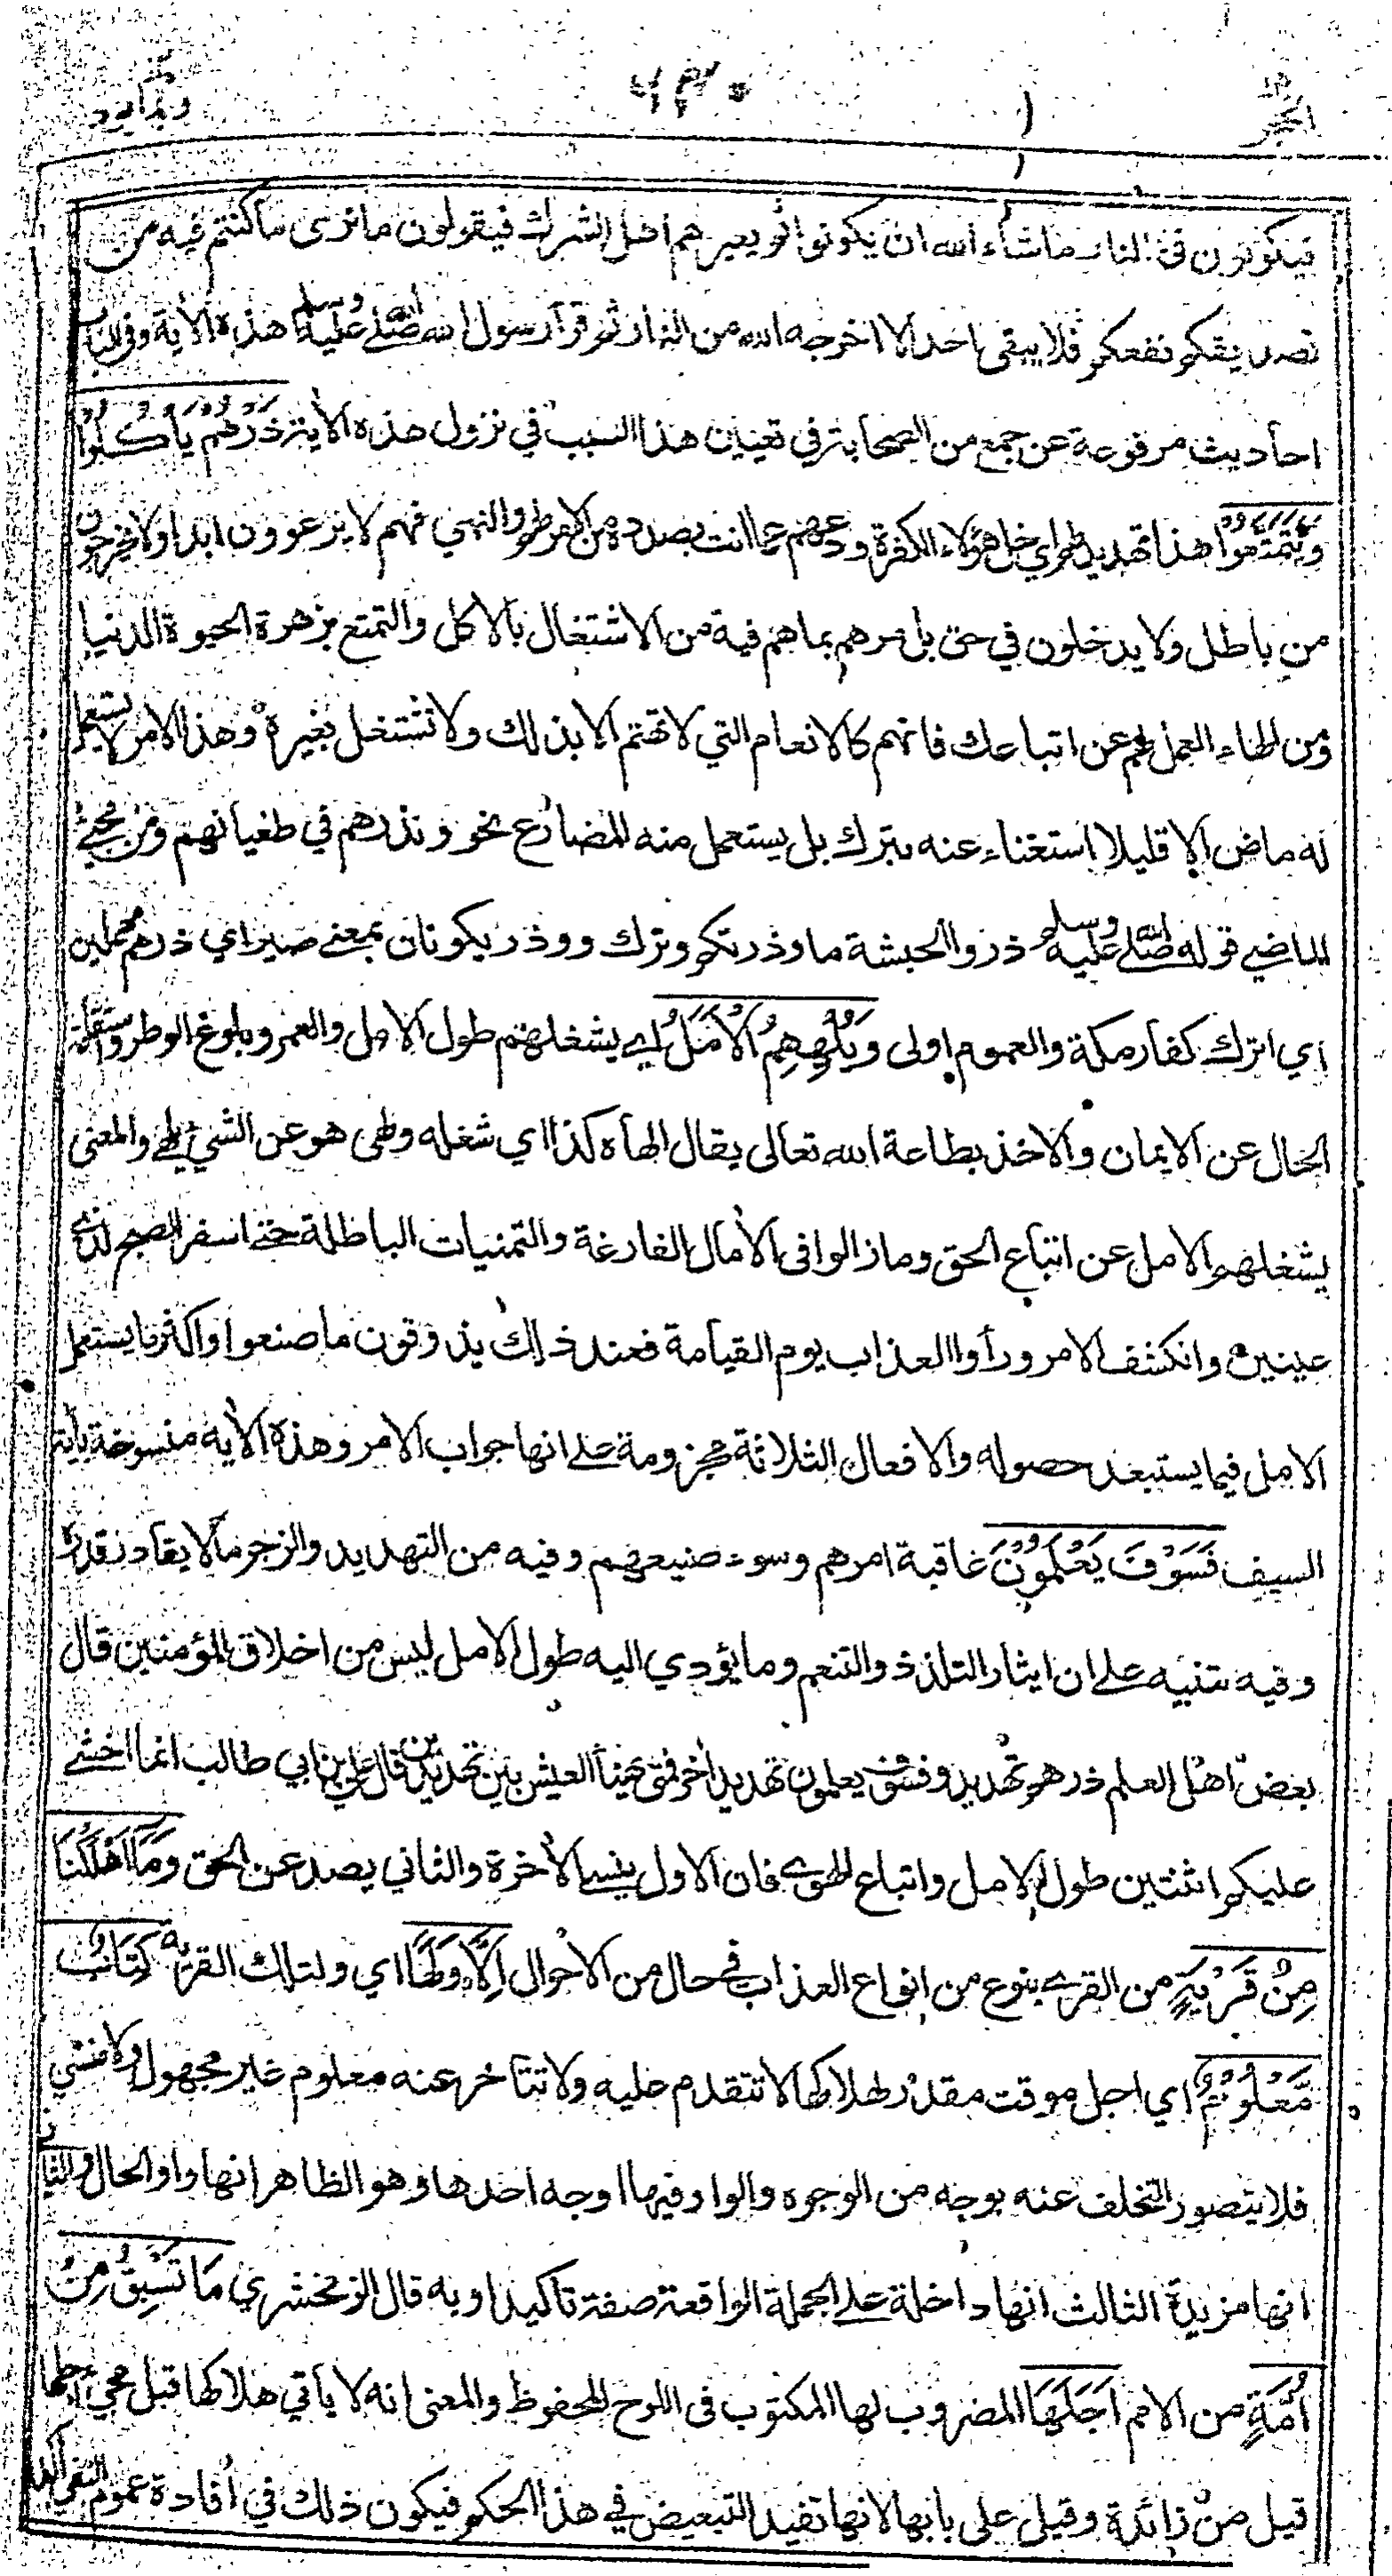 الحجر
وبما يود
فيكونون في النار ما شاء الله ان يكونوا ثم يعيرهم اهل الشرك فيقولون ما نرى ما كنتم فيه من
تصديقكم نفعكم فلا يبقى احد الا اخرجه الله من النار ثم قرأ رسول الله صلى الله عليه وسلم هذه الأية وفي الباب
احاديث مرفوعة عن جمع من الصحابة في تعيين هذا السبب في نزول هذه الأية ذَرْهُمْ يَأْكُلُوْا
وَيَتَمَتَّعُوْا هذا تهديد لهم اي خل هؤلاء الكفرة ودعهم عما انت بصدده من الامر لهم والنهي فهم لا يرعوون ابدا ولا يخرجون
من باطل ولا يدخلون في حق بل مرهم بما هم فيه من الاشتغال بالاكل والتمتع بزهرة الحيوة الدنيا
ومن الهاء العمل لهم عن اتباعك فانهم كالانعام التي لا تهتم الا بذلك ولا تشتغل بغيره وهذا الامر لا يستعمل
له ماض الا قليلا استغناء عنه بترك بل يستعمل منه المضارع نحو ونذرهم في طغيانهم ومن مجيء
الماضي قوله صلى الله عليه وسلم ذروا الحبشة ما وذرتكم وترك ووذر يكونان بمعنى صير اي ذرهم مهملين
اي اترك كفار مكة والعموم اولى وَيُلْهِهِمُ الْأَمَلُ اي يشغلهم طول الامل والعمر وبلوغ الوطر واستقامة
الحال عن الايمان والاخذ بطاعة الله تعالى يقال الهاه كذا اي شغله ولهى هو عن الشيء يلهى والمعنى
يشغلهم الامل عن اتباع الحق وما زالوا في الأمال الفارغة والتمنيات الباطلة حتى اسفر الصبح لذي
عينين وانكشف الامر ورأوا العذاب يوم القيامة فعند ذلك يذوقون ما صنعوا واكثر ما يستعمل
الامل فيما يستبعد حصوله والافعال الثلاثة مجزومة على انها جواب الامر وهذه الأية منسوخة بأية
السيف فَسَوْفَ يَعْلَمُوْنَ عاقبة امرهم وسوء صنيعهم وفيه من التهديد والزجر ما لا يقادر قدره
وفيه تنبيه على ان ايثار التلذذ والتنعم وما يؤدي اليه طول الامل ليس من اخلاق المؤمنين قال
بعض اهل العلم ذرهم تهديد وفسوف يعلمون تهديد أخر فمتى يهنأ العيش بين تهديدين قال علي بن ابي طالب انما اخشى
عليكم اثنتين طول الامل واتباع الهوى فان الاول ينسي الأخرة والثاني يصد عن الحق وَمَا أَهْلَكْنَا
مِنْ قَرْيَةٍ من القرى بنوع من انواع العذاب في حال من الاحوال إِلَّا وَلَهَا اي ولتلك القرية كِتَابٌ
مَّعْلُوْمٌ اي اجل موقت مقدر لهلاكها لا تتقدم عليه ولا تتأخر عنه معلوم غير مجهول ولا منسي
فلا يتصور التخلف عنه بوجه من الوجوه والواو فيها اوجه احدها وهو الظاهر انها واو الحال والثاني
انها مزيدة الثالث انها داخلة على الجملة الواقعة صفة تاكيدا وبه قال الزمخشري مَا تَسْبِقُ مِنْ
أُمَّةٍ من الامم أَجَلَهَا المضروب لها المكتوب في اللوح المحفوظ والمعنى انه لا يأتي هلاكها قبل مجيء اجلها
قيل من زائدة وقيل على بابها لانها تفيد التبعيض في هذا الحكم فيكون ذلك في افادة عموم النفي أكد